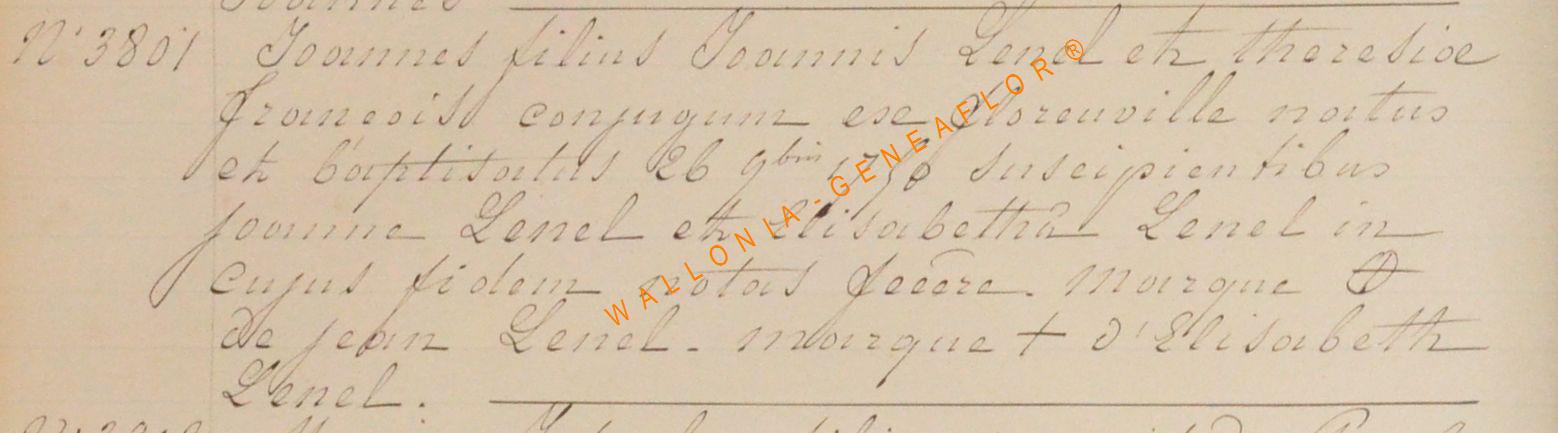 N° 3801 Joannes filius Joannis Lenel et theresiae
francois conjugum ex florenville natus
et baptisatus 26 9bris suscipientibus
joanne Lenel et Elisabetha Lenel in
cujus fidem notas fecere. Marque
de jean Lenel. marque + d'Elisabeth
Lenel.
WALLONIA-GENEAFLOR®